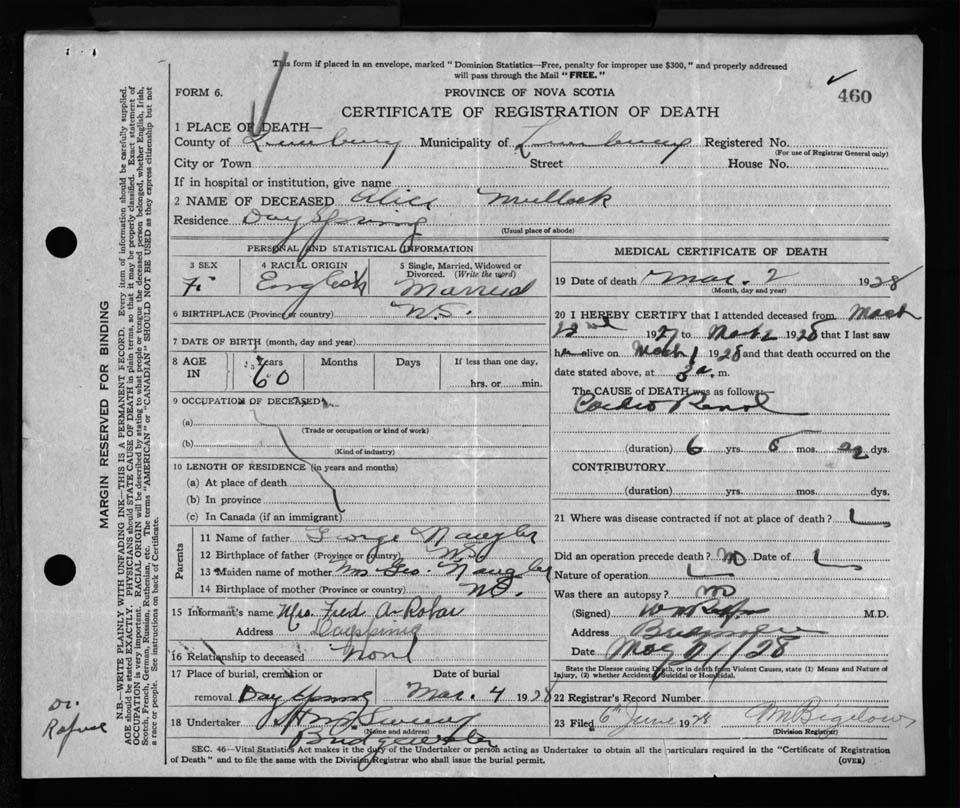 This form if placed in an envelope, marked "Dominion Statistics—Free, penalty for improper use $300," and properly addressed
will pass through the Mail "FREE."
FORM 6. PROVINCE OF NOVA SCOTIA
460
CERTIFICATE OF REGISTRATION OF DEATH
1 PLACE OF DEATH—
County of Lunenburg Municipality of Lunenburg Registered No.
(For use of Registrar General only)
City or Town Street House No.
If in hospital or institution, give name
2 NAME OF DECEASED Alice Mullock
Residence Day Spring
(Usual place of abode)
PERSONAL AND STATISTICAL INFORMATION
3 SEX 4 RACIAL ORIGIN 5 Single, Married, Widowed or
Divorced. (Write the word)
F. English Married
6 BIRTHPLACE (Province or country) N.S.
7 DATE OF BIRTH (month, day and year)
8 AGE IN Years Months Days If less than one day,
60 hrs. or min.
9 OCCUPATION OF DECEASED
(a)
(Trade or occupation or kind of work)
(b)
(Kind of industry)
10 LENGTH OF RESIDENCE (in years and months)
(a) At place of death
(b) In province
(c) In Canada (if an immigrant)
Parents
11 Name of father George Naugler
12 Birthplace of father (Province or country) N.S.
13 Maiden name of mother Mrs. Geo. Naugler
14 Birthplace of mother (Province or country) N.S.
15 Informant's name Mrs. Fred A.
Address Dayspring
16 Relationship to deceased None
17 Place of burial, cremation or Date of burial
removal Day Spring Mar. 4 1928
18 Undertaker Sweeny
(Name and address)
Bridgewater
MEDICAL CERTIFICATE OF DEATH
19 Date of death Mar. 2 1928
(Month, day and year)
20 I HEREBY CERTIFY that I attended deceased from March
1927 to March 2 1928 that I last saw
h alive on March 1 1928 and that death occurred on the
date stated above, at 3 a. m.
The CAUSE OF DEATH was as follows:
Cardio Renal
(duration) 6 yrs. 5 mos. dys.
CONTRIBUTORY
(duration) yrs. mos. dys.
21 Where was disease contracted if not at place of death?
Did an operation precede death? no Date of
Nature of operation
Was there an autopsy? no
(Signed) M.D.
Address Bridgewater
Date
State the Disease causing Death, or in death from Violent Causes, state (1) Means and Nature of
Injury, (2) whether Accidental, Suicidal or Homicidal.
22 Registrar's Record Number
23 Filed 6th June 1928 Wm Bigelow
(Division Registrar)
SEC. 46—Vital Statistics Act makes it the duty of the Undertaker or person acting as Undertaker to obtain all the particulars required in the "Certificate of Registration
of Death" and to file the same with the Division Registrar who shall issue the burial permit. (OVER)
MARGIN RESERVED FOR BINDING
N.B.—WRITE PLAINLY WITH UNFADING INK—THIS IS A PERMANENT RECORD. Every item of information should be carefully supplied.
AGE should be stated EXACTLY. PHYSICIANS should STATE CAUSE OF DEATH in plain terms, so that it may be properly classified. Exact statement of
OCCUPATION is very important. RACIAL ORIGIN will be described by stating to what people or tongue the deceased person belonged, whether English, Irish,
Scotch, French, German, Russian, Ruthenian, etc. The terms "AMERICAN" or "CANADIAN" SHOULD NOT BE USED as they express citizenship but not
a race or people. See instructions on back of Certificate.
Dr.
Refuse